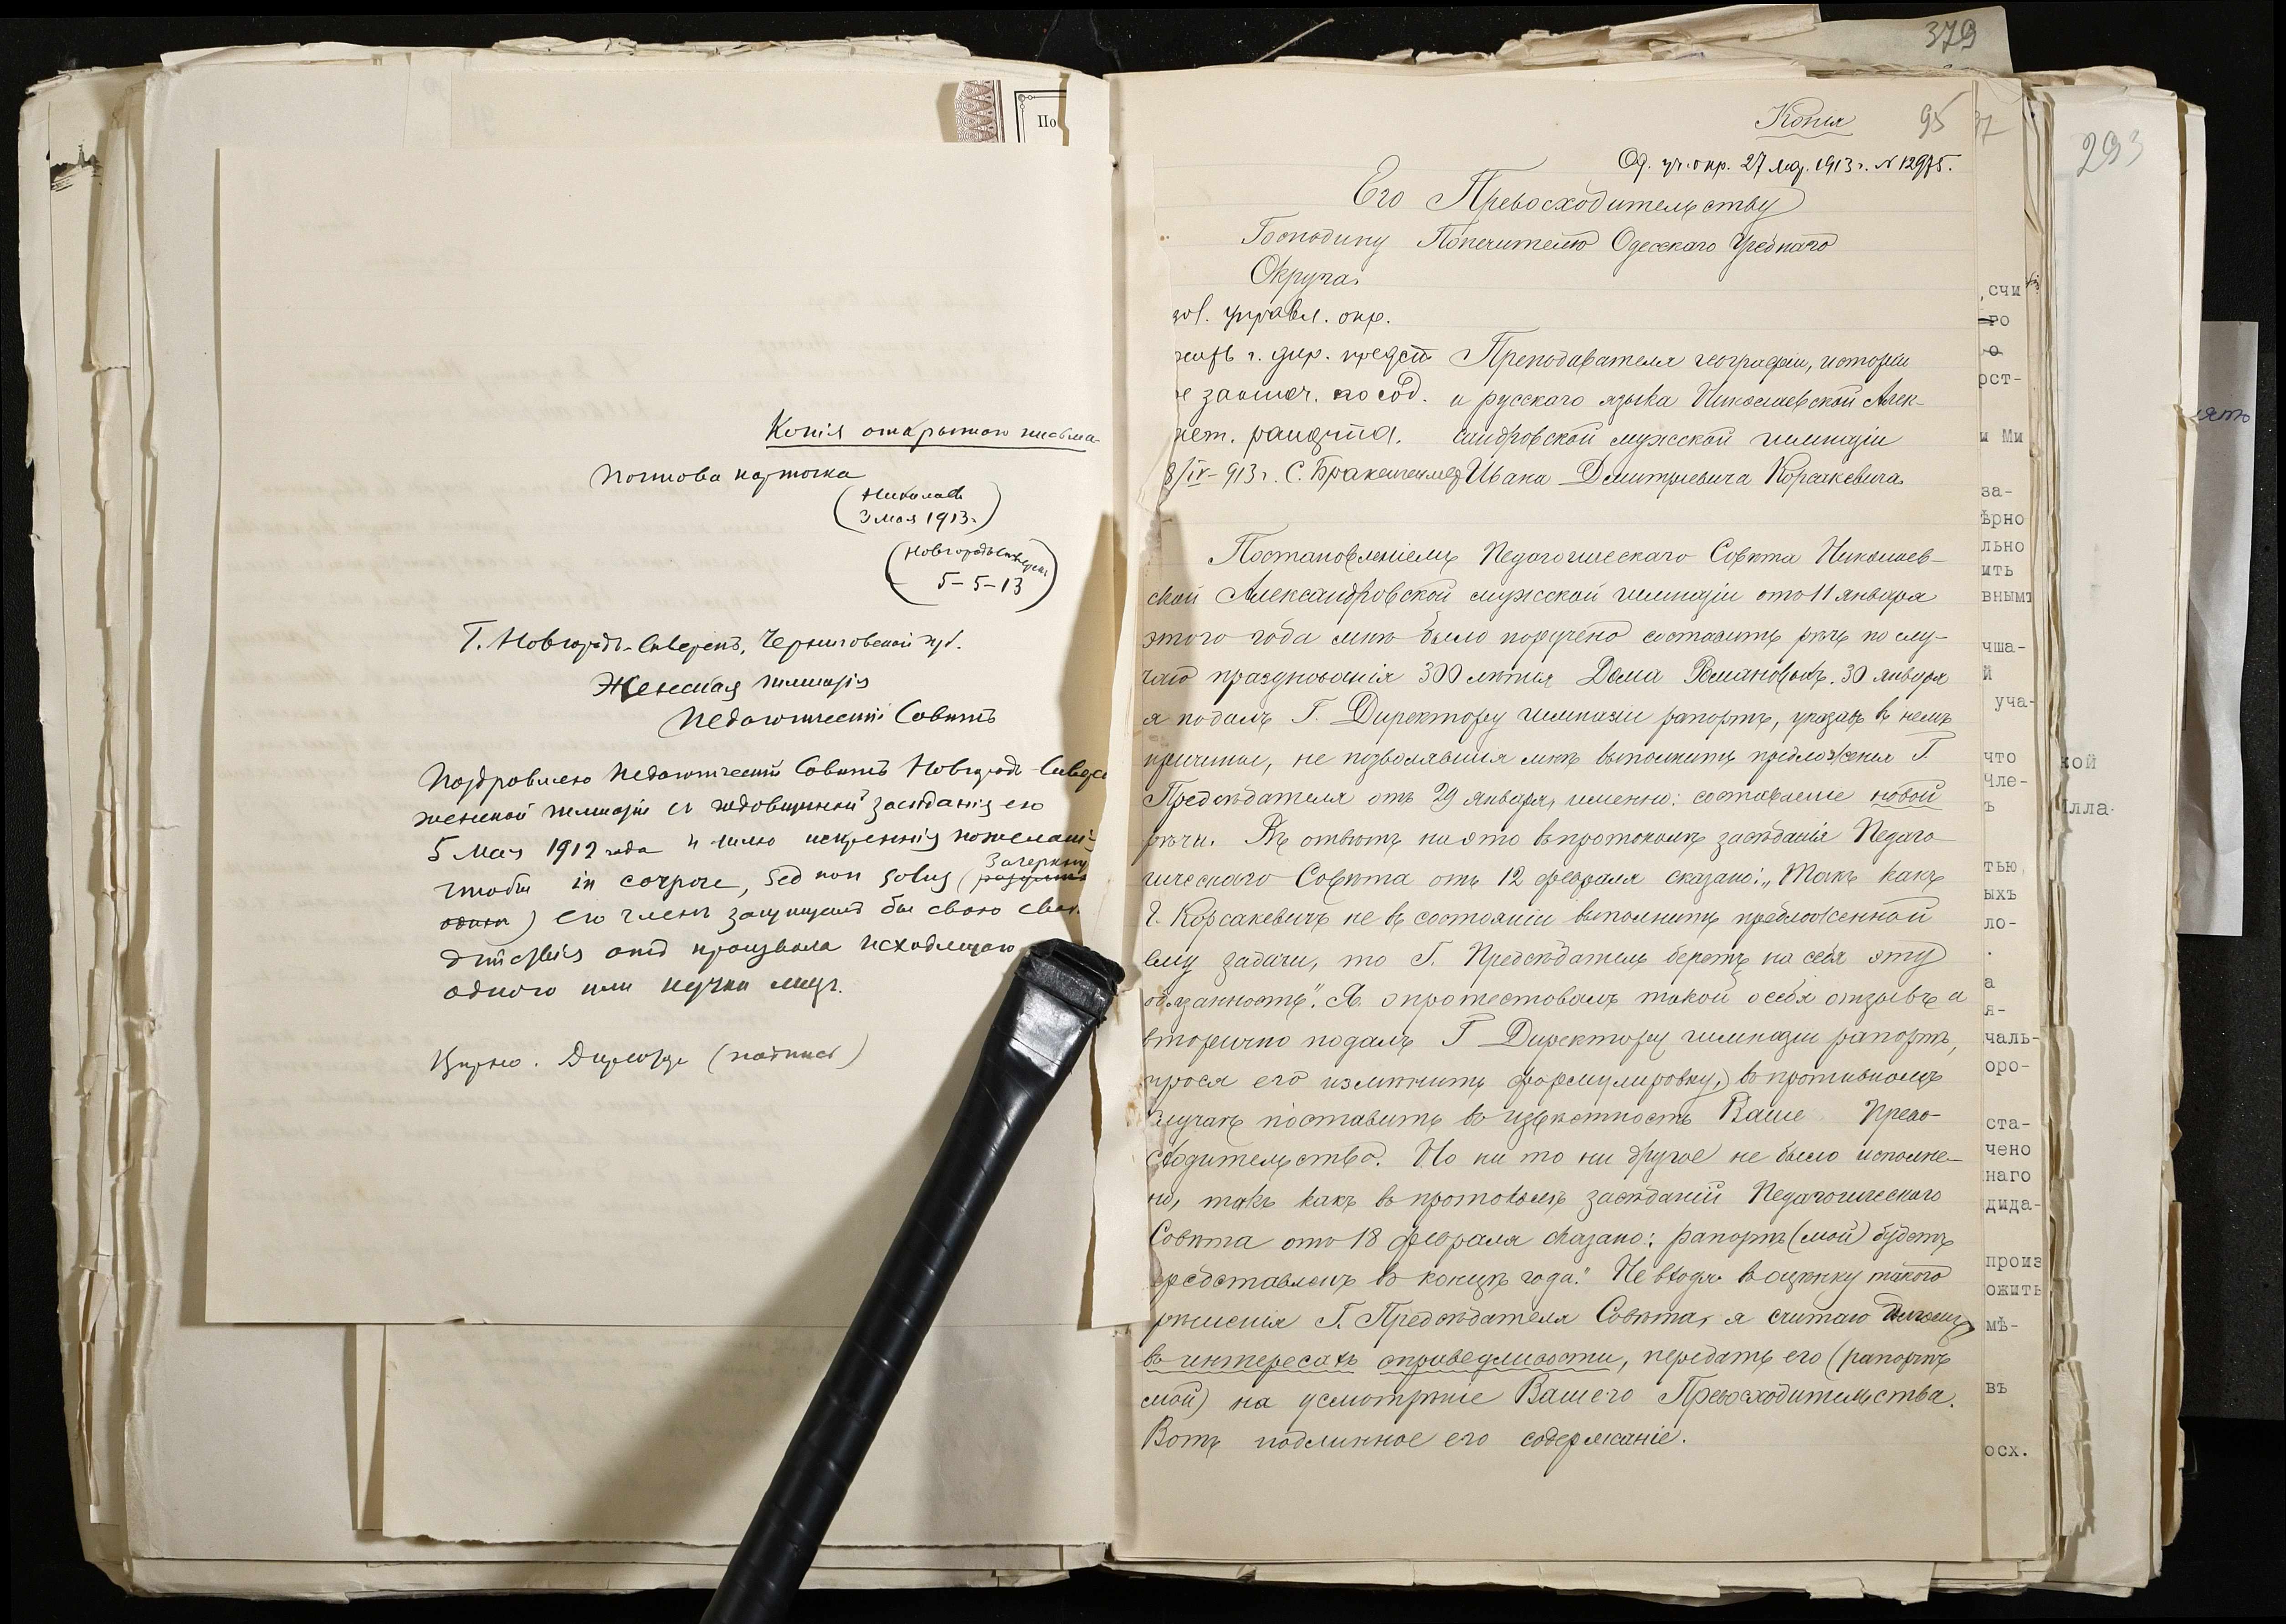 По
Копія открытого письма
Почтова карточка
(Николаев
3 мая 1913 г.)
(Новгородъ Сѣверск
5-5-13)
Г. Новгородъ-Сѣверскъ, Черниговской губ.
Женская гимназія
Педагогическій Совѣтъ
Поздравляю Педагогическій Совѣтъ Новгородъ-Сѣверс
женской гимназіи съ годовщиной засѣданія его
5 мая 1912 года и шлю искреннія пожеланія
чтобы in corpore, sed non solus (
Зачеркну
) его членъ защищалъ бы свою
дѣйствія отъ произвола исходящаго
одного или кучки лицъ.
Вѣрно. Директоръ (подпись)
379
Копія
95
37
Од. уч. окр. 27 мар. 1913 г. № 12975.
Его Превосходительству
Господину Попечителю Одесскаго Учебнаго
Округа.
управл. окр.
г. дир. предст Преподавателя географіи, исторіи
заключ. по сод. и русскаго языка Николаевской Алек-
рапорта. сандровской мужской гимназіи
8/IV-913 г. С. Ивана Дмитріевича Корсакевича.
Постановленіемъ Педагогическаго Совѣта Николаев-
ской Александровской мужской гимназіи отъ 11 января
этого года мнѣ было поручено составить рѣчь по слу-
чаю празднованія 300 лѣтія Дома Романовыхъ. 30 января
я подалъ Г. Директору гимназіи рапортъ, указавъ въ немъ
причины, не позволявшія мнѣ выполнить предложенія Г.
Предсѣдателя отъ 29 января, именно: составленіе новой
рѣчи. Въ отвѣтъ на это въ протоколѣ засѣданія Педаго
гическаго Совѣта отъ 12 февраля сказано: „Такъ какъ
Г. Корсакевичъ не въ состояніи выполнить предложенной
ему задачи, то Г. Предсѣдатель беретъ на себя эту
обязанность". Я опротестовалъ такой о себѣ отзывъ и
вторично подалъ Г Директору гимназіи рапортъ,
прося его измѣнить формулировку, въ противномъ
случаѣ поставить въ извѣстность Ваше Прево-
сходительство. Но ни то ни другое не было исполне-
но, такъ какъ въ протоколѣ засѣданій Педагогическаго
Совѣта отъ 18 февраля сказано: рапортъ (мой) будетъ
представленъ въ концѣ года." Не входя въ оцѣнку такого
рѣшенія Г. Предсѣдателя Совѣта, я считаю долгомъ
въ интересахъ справедливости, передать его (рапортъ
мой) на усмотрѣніе Вашего Превосходительства.
Вотъ подлинное его содержаніе.
,счи
ро
о
рст-
и Ми
за-
ѣрно
льно
ить
внымъ
чша-
й
уча-
что
Чле-
ъ
тью,
ыхъ
ло-
.
а
я-
чаль-
оро-
ста-
чено
наго
дида-
произ
ожить
мѣ-
въ
осх.
293
кой
лла-
ять